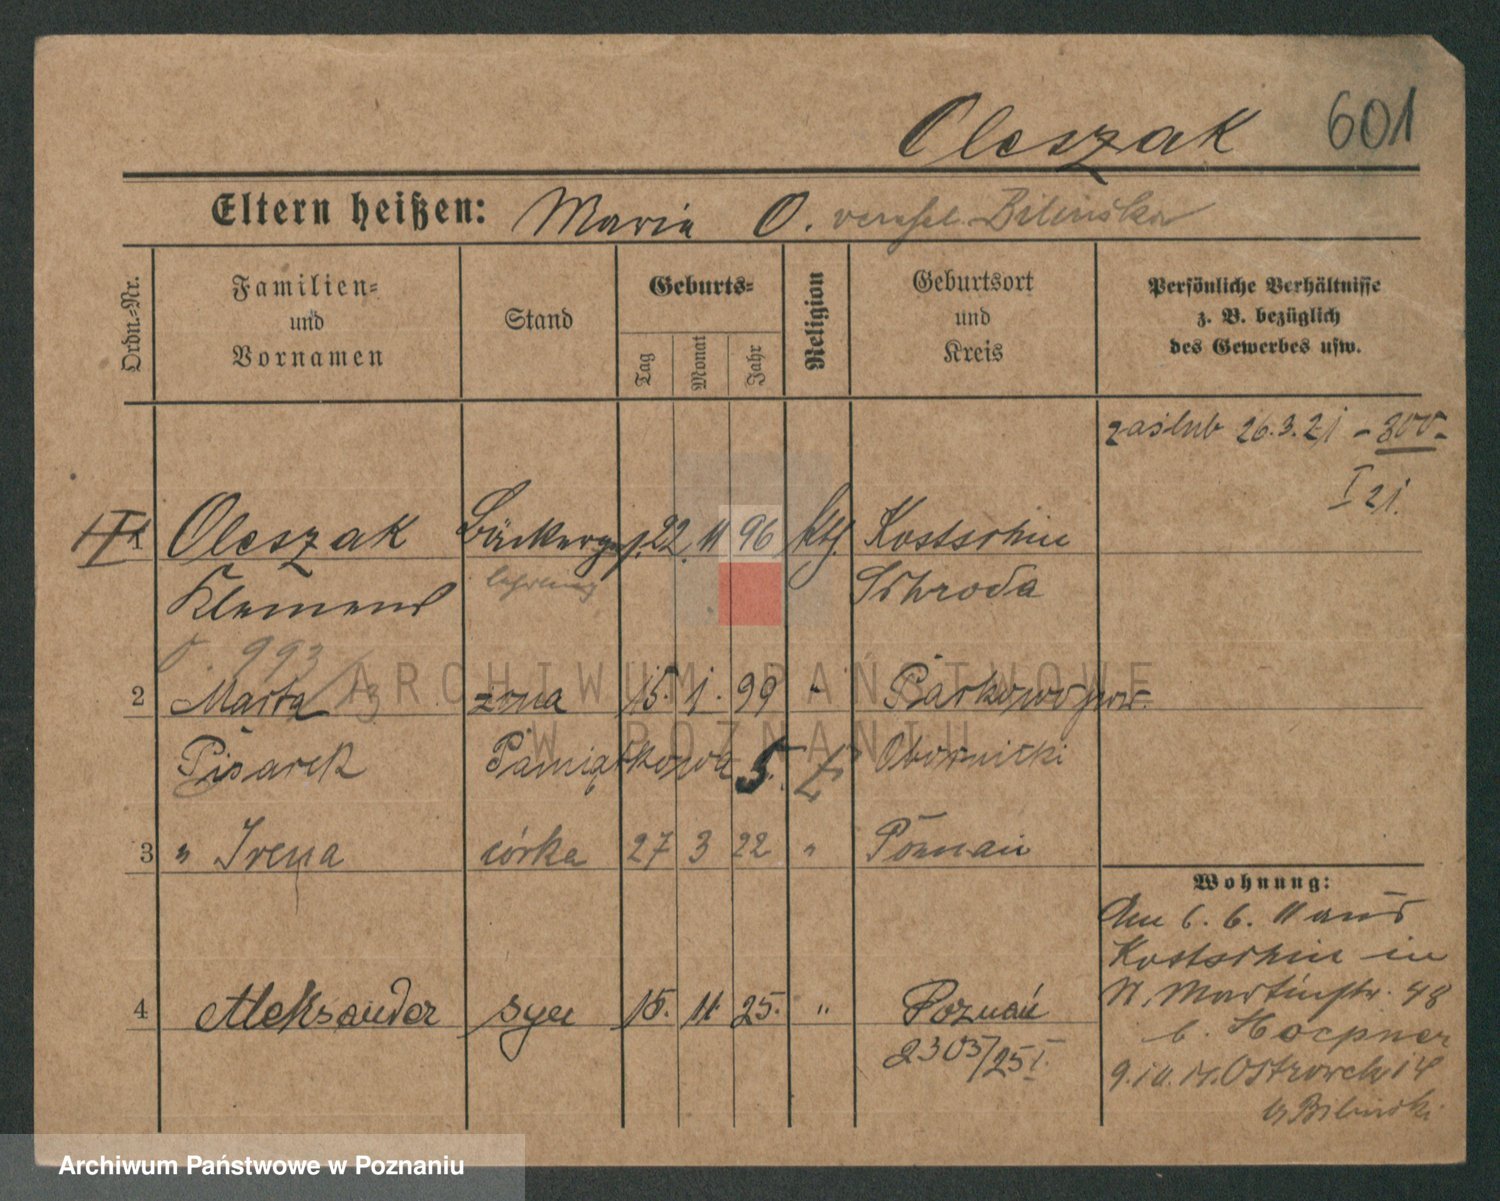 Oleszak 601
Eltern heißen: Maria O. verehel. Bilinska
Ordn.-Nr.
Familien-
und
Vornamen
Stand
Geburts-
Tag
Monat
Jahr
Religion
Geburtsort
und
Kreis
Persönliche Verhältnisse
z. B. bezüglich
des Gewerbes usw.
zaślub 26.3.21 - 800 -
I 21.
1 Oleszak Bäckerges. 22. 11 96 kth Kostschin
Klemens lehrling Schroda
993
2 Marta żona 15. 1. 99 " Parkowo pow.
Pisarek Pamiątkowa 5. Obornicki
3 " Irena córka 27 3 22 " Poznań
4 Aleksander syn 15. 11. 25. " Poznań
2303/25 I.
Wohnung:
Am 6. 6. 11 aus
Kostschin in
St. Martinstr. 48
b. Hoepner
9.10.11. Ostrowek 14
b Bilinski
ARCHIWUM PAŃSTWOWE
W POZNANIU
Archiwum Państwowe w Poznaniu